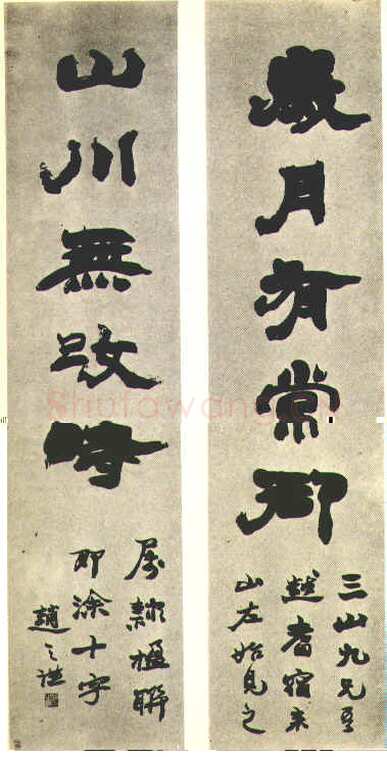 歲月有常御
三山九兄吾
越耆宿來
山左始見之
山川無改時
屬隸楹聯
即塗十字
趙之謙
Shufawang.cn